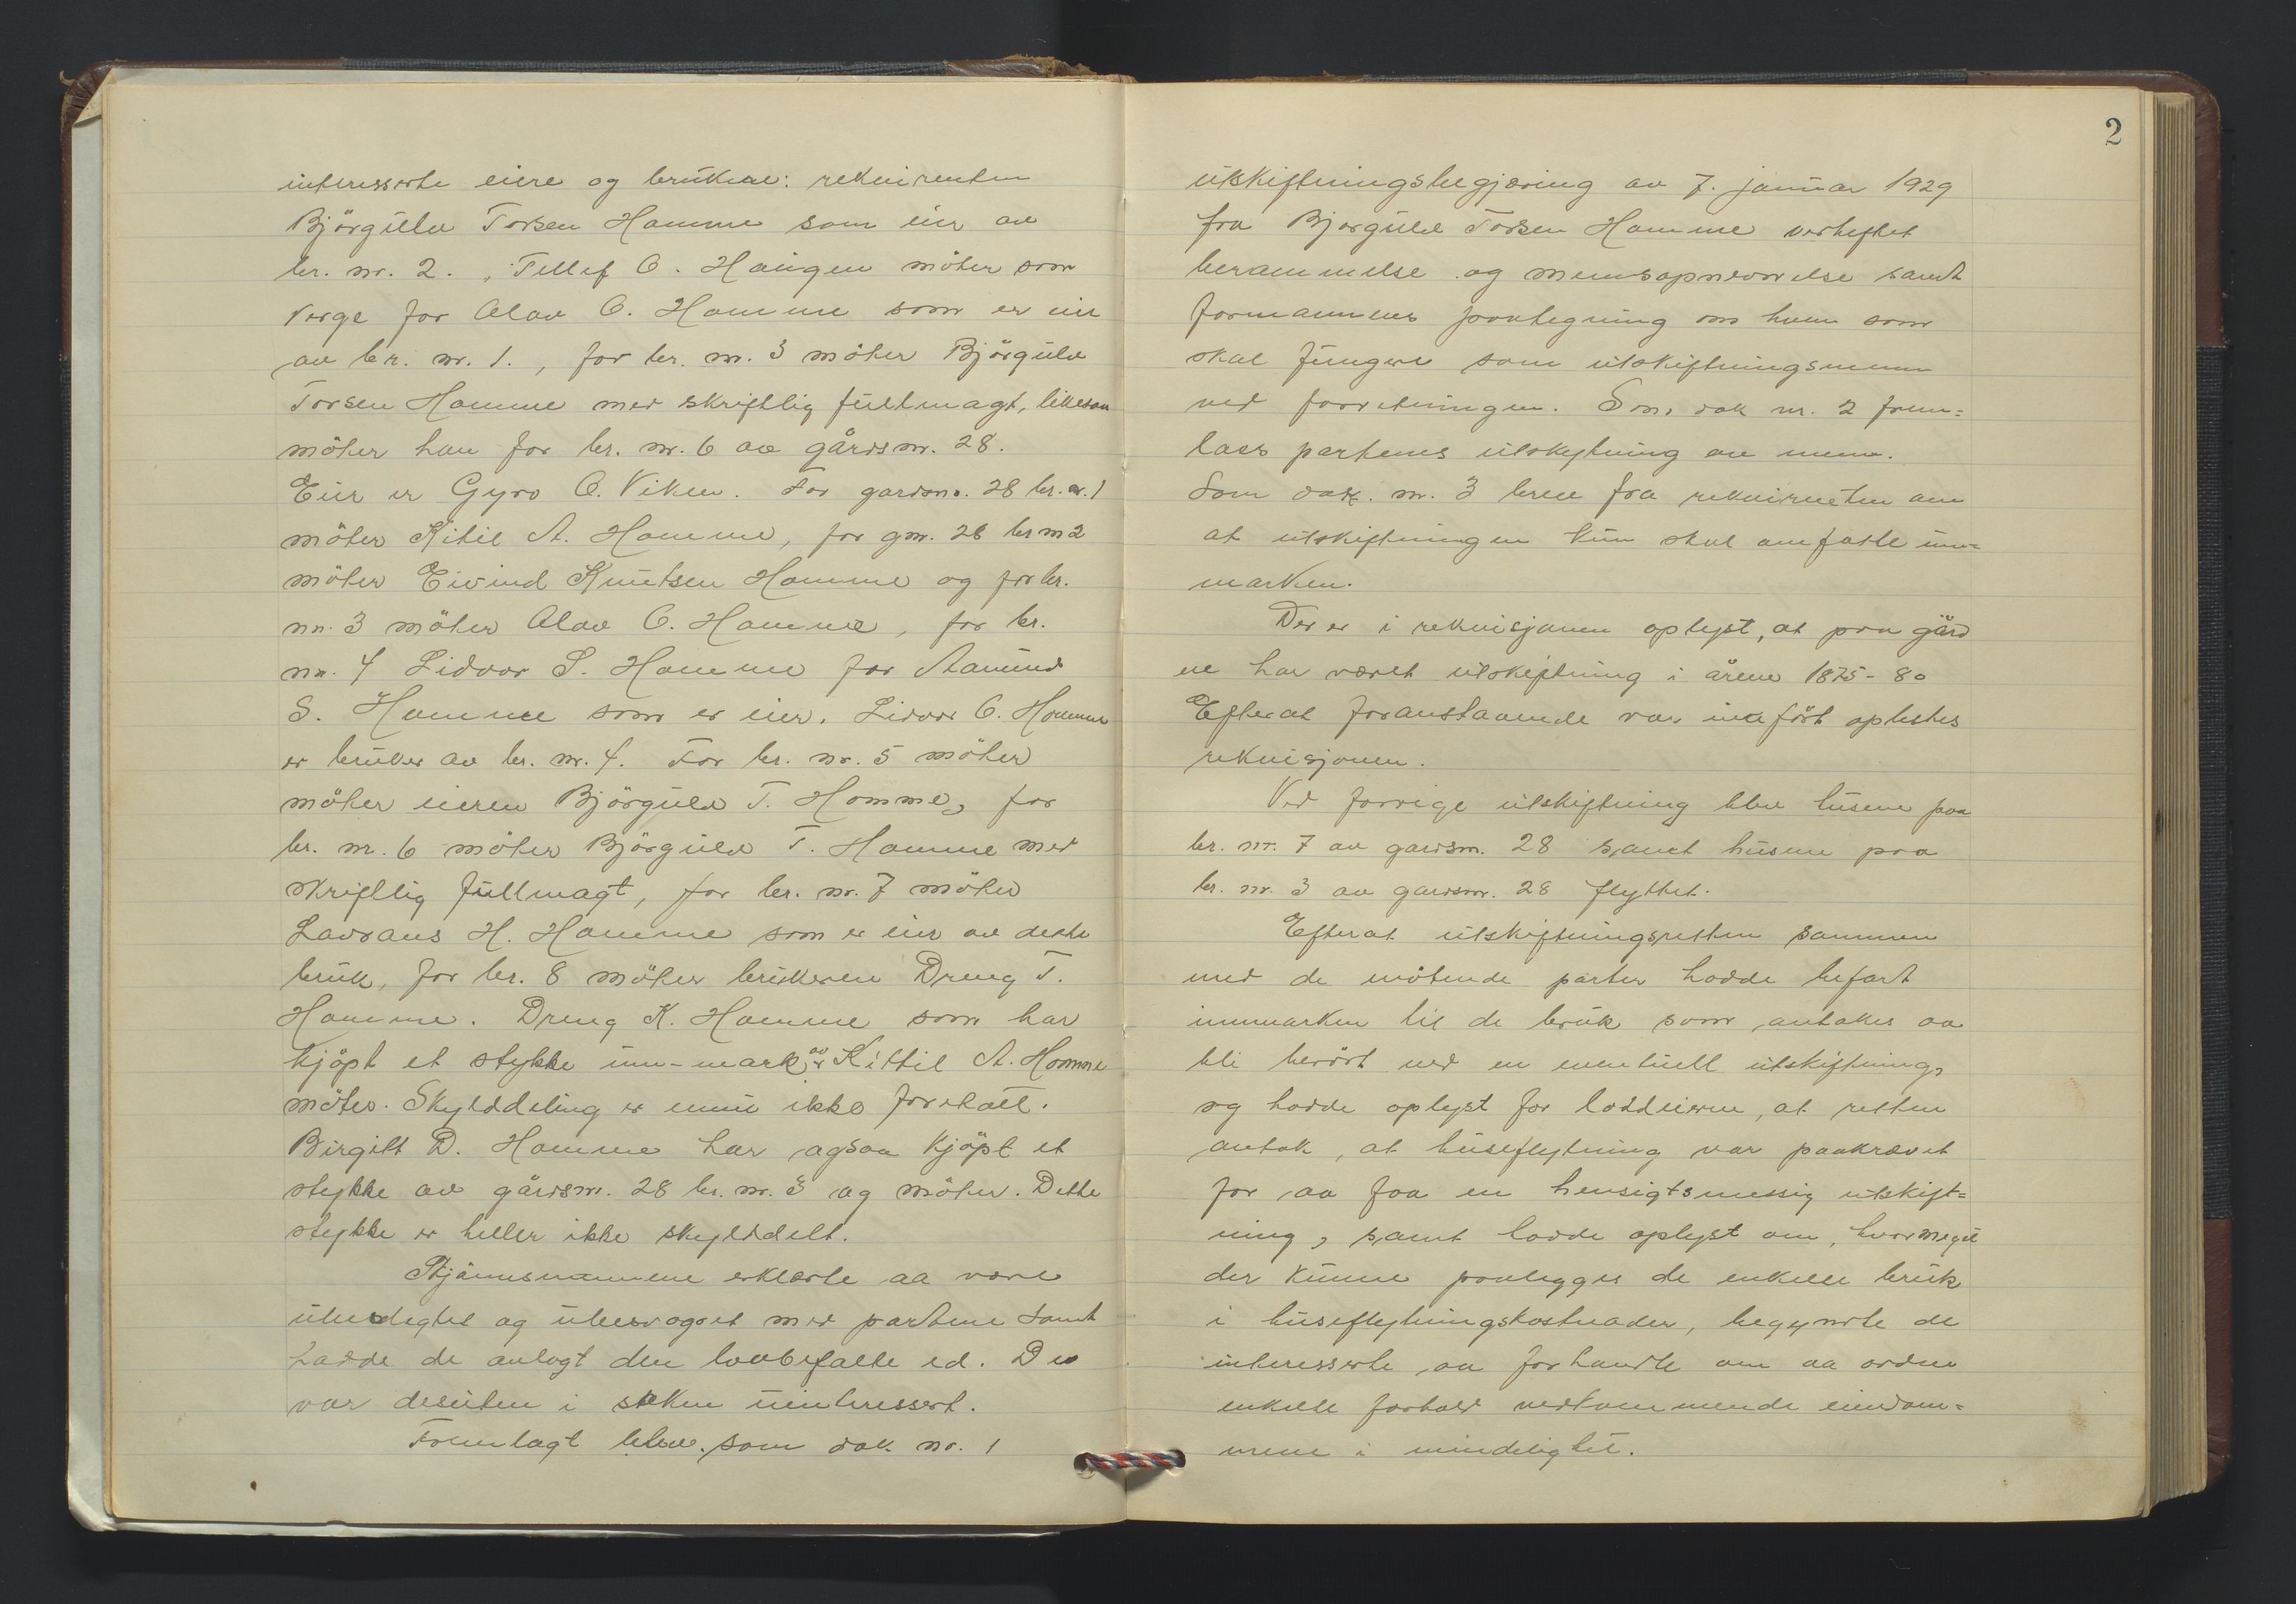 interesserte eiere og brukere: rekvirenten
Björgulv Torsen Homme som eier av
br. nr. 2. , Tellef O. Haugen möter som
verge for Olav O. Homme som er eier
av br. nr. 1. , for br. nr. 3 möter Björgulv
Torsen Homme med skriftlig fullmagt, likesom
möter han for br. nr. 6 av gårdsnr. 28.
Eier er Gyro O. Viken. For gardsnr. 28 br. nr. 1
möter Kitil A. Homme, for gnr. 28 br nr 2
möter Eivind Knutsen Homme og for br.
nr. 3 möter Olav O. Homme, for br.
nr. 4 Lidvor S. Homme for Aamund
S. Homme som er eier. Lidvor O. Homme
er bruker av br. nr. 4. For br. nr. 5 möter
möter eieren Björgulv T. Homme, for
br. nr. 6 möter Björgulv T. Homme med
skriftlig fullmagt, for br. nr. 7 möter
Lavrans H. Homme som er eier av dette
bruk, for br. 8 möter brukeren Dreng T.
Homme. Dreng K. Homme som har
kjöpt et stykke inn-mark av Kittil A. Homme
möter. Skylddeling er ennu ikke foretatt.
Birgitt D. Homme har ogsaa kjöpt et
stykke av gårdsnr. 28 br. nr. 3 og möter. Dette
stykke er heller ikke skylddelt.
Skjönnsmennene erklærte aa være
ubeslegtet og ubesvogret med partene samt
hadde de avlagt den lovbefalte ed. De
var desuten i saken uinteressert.
Fremlagt blev som dok nr. 1
2
utskiftningsbegjæring av 7. januar 1929
fra Bjorgulv Torsen Homme vedheftet
berammelse og mennsopnevnelse samt
formannens paategning om hvem som
skal fungere som utskiftningsmenn
ved forretningen. Som dok nr. 2 frem=
lass partenes utskytning av menn.
Som dok. nr. 3 brev fra rekvirenten om
at utskiftningen kun skal omfatte inn=
marken.
Der er i rekvisjonen oplyst, at paa gård
ene har været utskiftning i årene 1875-80
Efterat foranstaaende var inført oplestes
rekvisjonen.
Ved forrige utskiftning blev husene paa
br. nr. 7 av gardsnr. 28 samt husene paa
br. nr. 3 av gardsnr. 28 flyttet.
Efterat utskiftningsretten sammen
med de mötende parter hadde befart
innmarken til de bruk som antakes aa
bli berört ved en eventuell utskiftning,
og hadde oplyst for loddeierne, at retten
antok, at huseflytning var paakrævet
for aa faa en hensigtsmessig utskift=
ning, samt hadde oplyst om, hvormeget
der kunne paalegges de enkelte bruk
i huseflytningskostnader, begynte de
interesserte aa forhandle om aa ordne
enkelte forhold vedkommende eiendom=
mene i mindelighet.